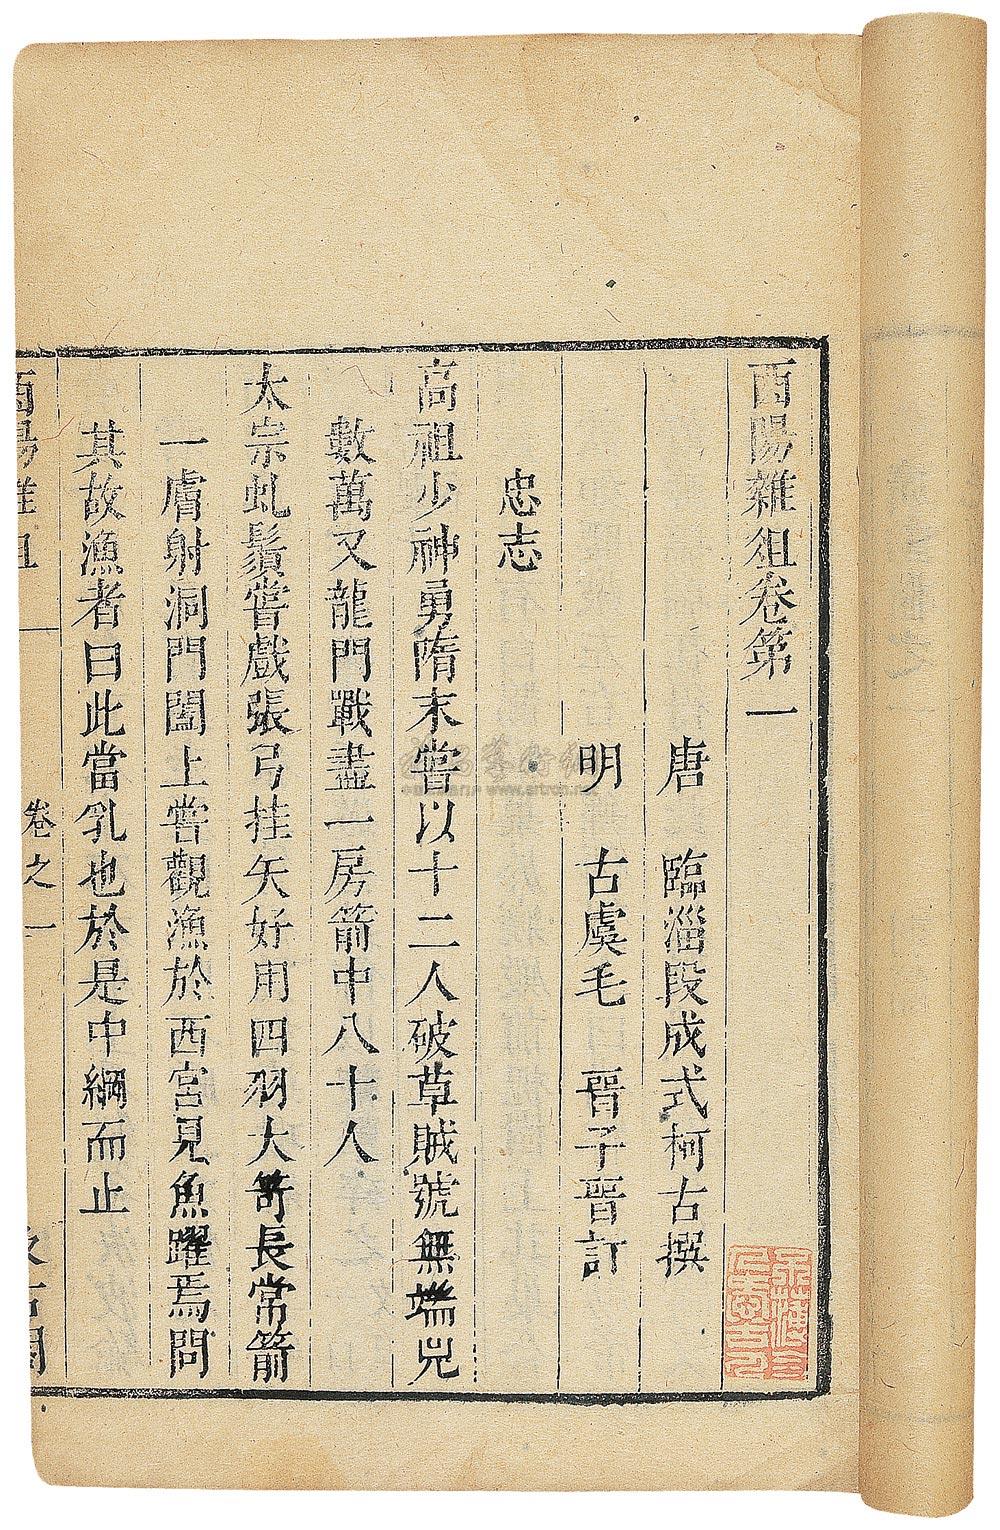 酉陽雜俎卷第一
唐　臨淄段成式柯古撰
明　古虞毛　晉子晉訂
忠志
高祖少神勇隋末嘗以十二人破草賊號無端兒
數萬又龍門戰盡一房箭中八十人
太宗虬鬚嘗戲張弓挂矢好用四羽大笴長常箭
一膚射洞門闔上嘗觀漁於西宮見魚躍焉問
其故漁者曰此當乳也於是中網而止
酉陽雜俎　卷之一　汲古閣